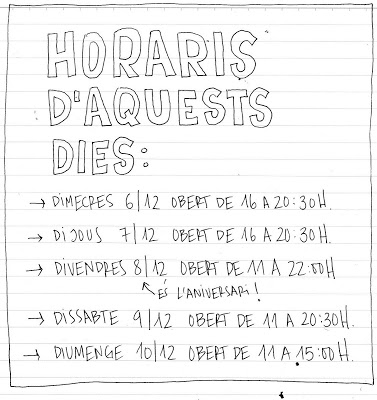 HORARIS
D'AQUESTS
DIES:
→ DIMECRES 6/12 OBERT DE 16 A 20:30H.
→ DIJOUS 7/12 OBERT DE 16 A 20:30H.
→ DIVENDRES 8/12 OBERT DE 11 A 22:00H
ÉS L'ANIVERSARI!
→ DISSABTE 9/12 OBERT DE 11 A 20:30H.
→ DIUMENGE 10/12 OBERT DE 11 A 15:00H.